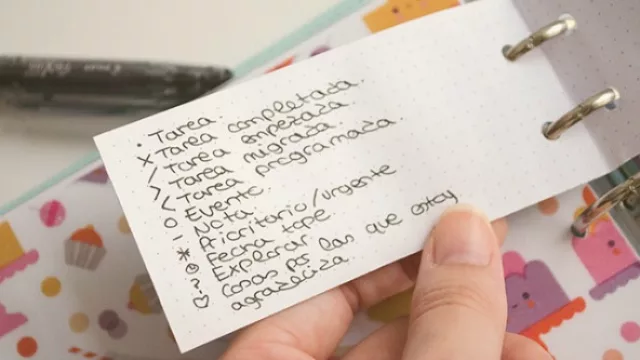 • Tarea.
X Tarea completada.
/ Tarea empezada.
> Tarea migrada.
< Tarea programada.
O Evento.
- Nota.
* Prioritario/urgente
Fecha tope.
? Explorar.
♡ Cosas por las que estoy
agradecida.